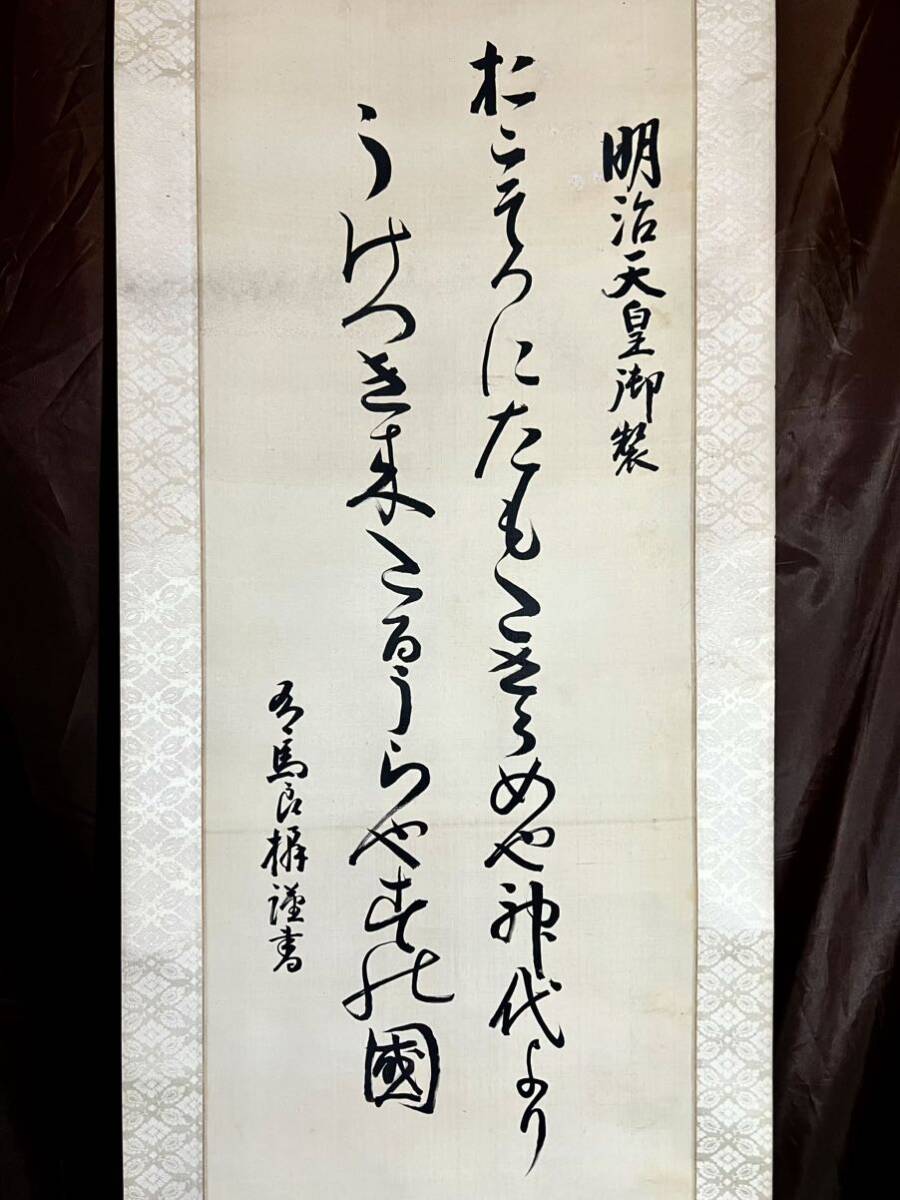 明治天皇御製
おこそかにたもたさらめや神代より
うけつき来たるうらやすの國
有馬良橘謹書